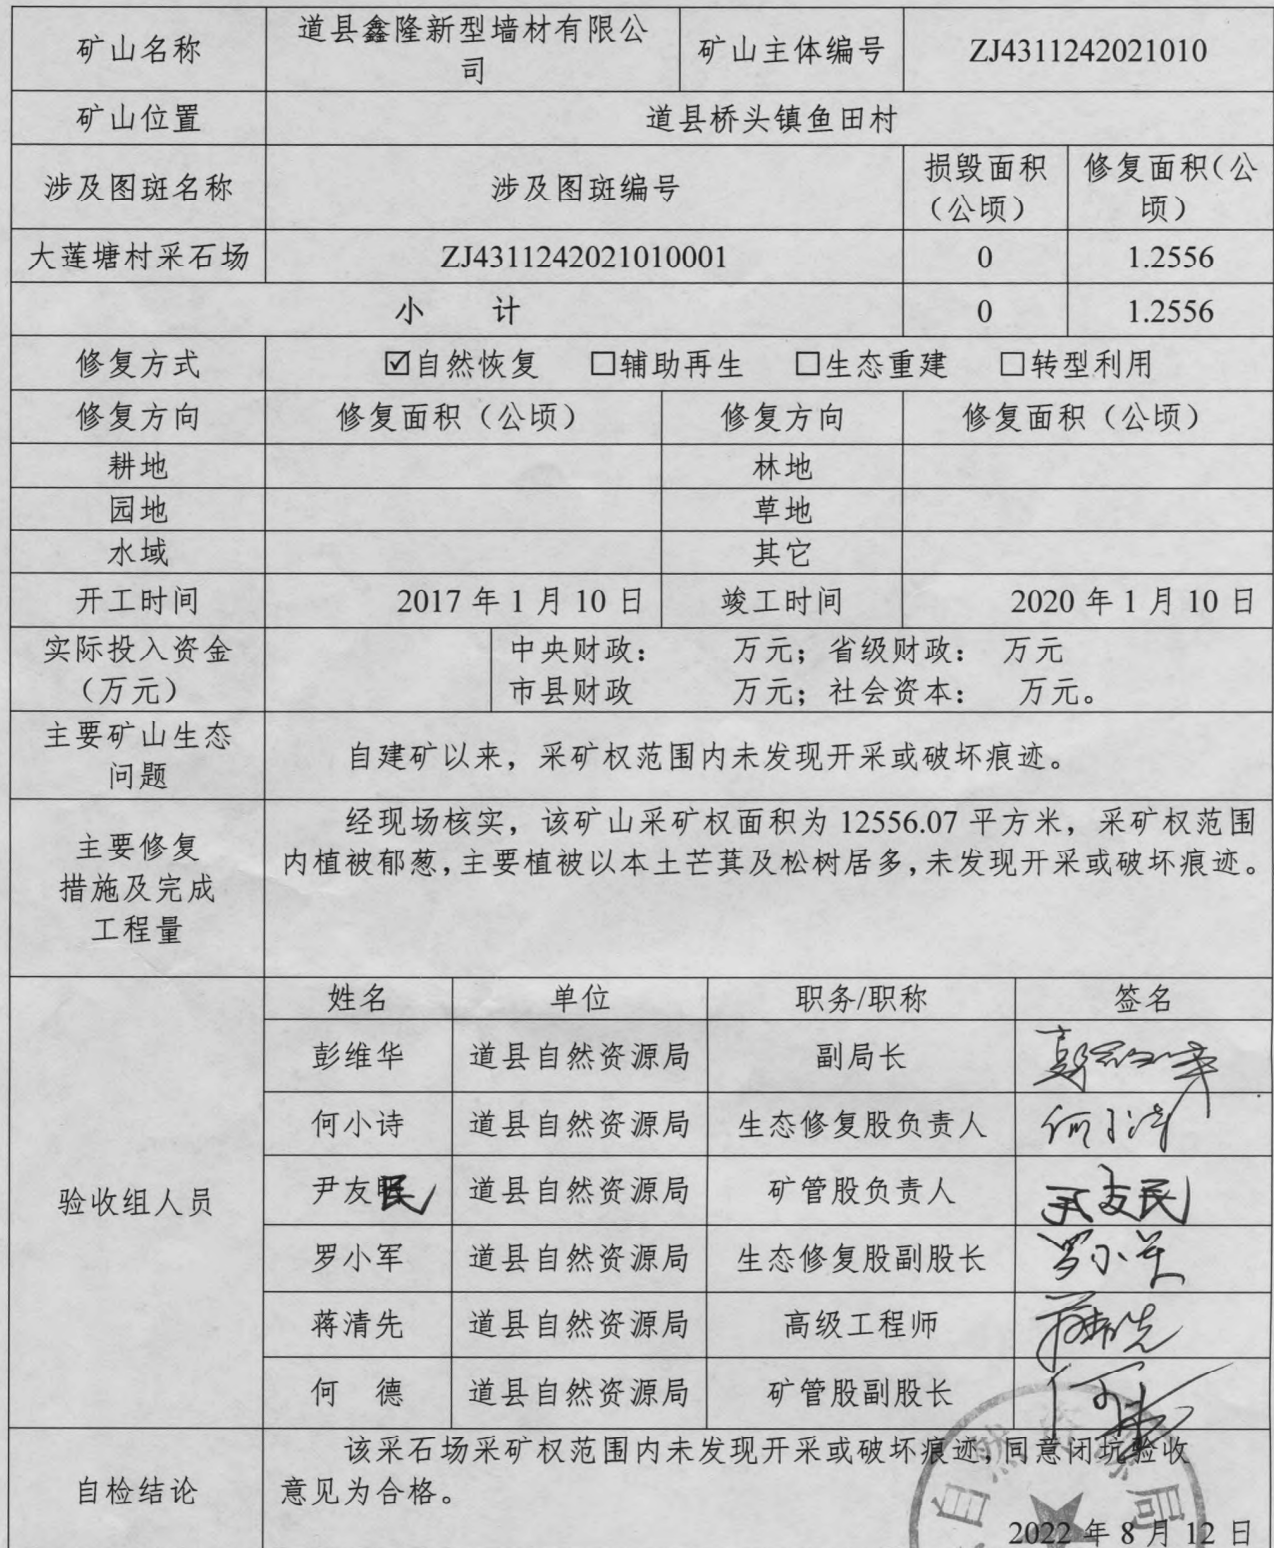 矿山名称 道县鑫隆新型墙材有限公 矿山主体编号 ZJ4311242021010
司
矿山位置 道县桥头镇鱼田村
涉及图斑名称 涉及图斑编号 损毁面积 修复面积(公
（公顷） 顷）
大莲塘村采石场 ZJ4311242021010001 0 1.2556
小 计 0 1.2556
修复方式 ☑自然恢复 □辅助再生 □生态重建 □转型利用
修复方向 修复面积（公顷） 修复方向 修复面积（公顷）
耕地 林地
园地 草地
水域 其它
开工时间 2017 年 1 月 10 日 竣工时间 2020 年 1 月 10 日
实际投入资金 中央财政： 万元；省级财政： 万元
（万元） 市县财政 万元；社会资本： 万元。
主要矿山生态
问题 自建矿以来，采矿权范围内未发现开采或破坏痕迹。
经现场核实，该矿山采矿权面积为 12556.07 平方米，采矿权范围
主要修复 内植被郁葱，主要植被以本土芒萁及松树居多，未发现开采或破坏痕迹。
措施及完成
工程量
姓名 单位 职务/职称 签名
彭维华 道县自然资源局 副局长 彭维华
何小诗 道县自然资源局 生态修复股负责人 何小诗
验收组人员 尹友民 道县自然资源局 矿管股负责人 尹友民
罗小军 道县自然资源局 生态修复股副股长 罗小军
蒋清先 道县自然资源局 高级工程师 蒋清先
何 德 道县自然资源局 矿管股副股长 何德
该采石场采矿权范围内未发现开采或破坏痕迹，同意闭坑验收
自检结论 意见为合格。
自然资源局
2022 年 8 月 12 日